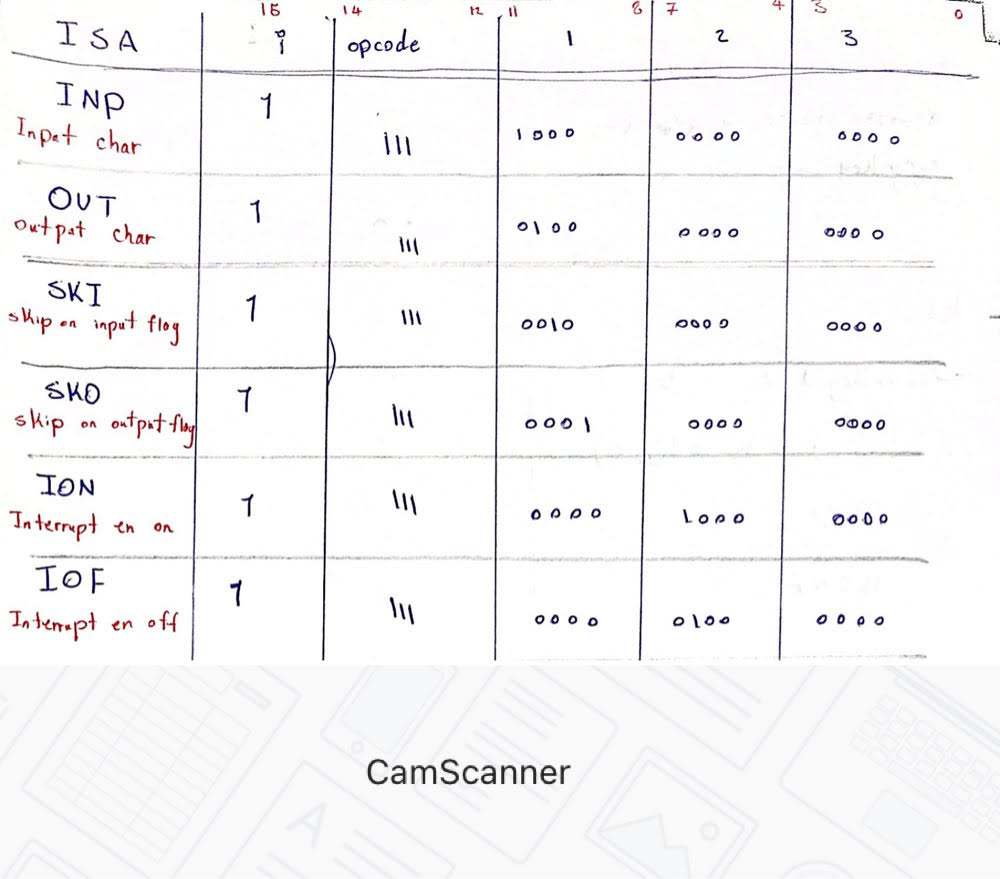 15 14 12 11 8 7 4 3 0
ISA i opcode 1 2 3
INP 1
Input char 111 1000 0000 0000
OUT 1
output char 111 0100 0000 0000
SKI 1
skip on input flag 111 0010 0000 0000
SKO 1
skip on output flag 111 0001 0000 0000
ION 1
Interrupt en on 111 0000 1000 0000
IOF 1
Interrupt en off 111 0000 0100 0000
CamScanner